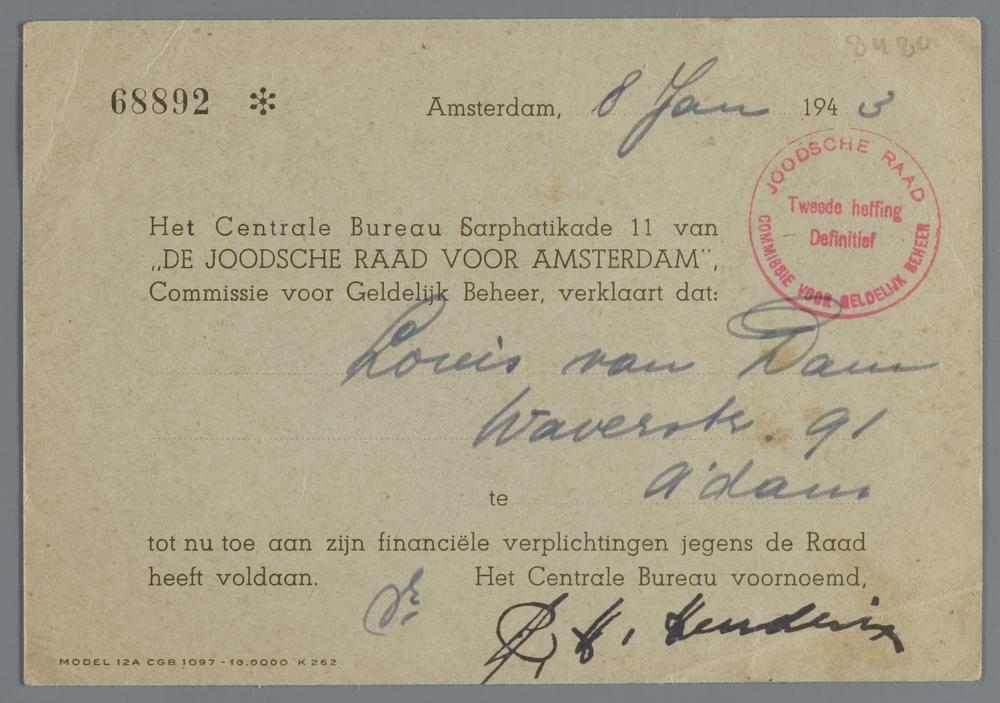 8480
68892 * Amsterdam, 8 Jan 1943
JOODSCHE RAAD
Tweede heffing
Definitief
COMMISSIE VOOR GELDELIJK BEHEER
Het Centrale Bureau Sarphatikade 11 van
„DE JOODSCHE RAAD VOOR AMSTERDAM”,
Commissie voor Geldelijk Beheer, verklaart dat:
Louis van Dam
Waverstr. 91
te A'dam
tot nu toe aan zijn financiële verplichtingen jegens de Raad
heeft voldaan. Het Centrale Bureau voornoemd,
MODEL 12A CGB 1097 - 10.0000 K 262